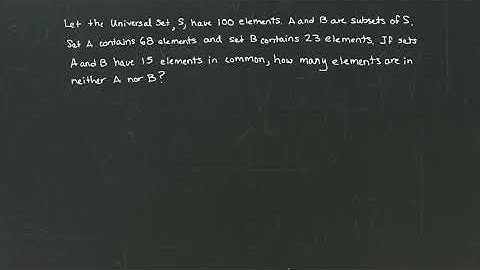 Let the Universal Set, S, have 100 elements. A and B are subsets of S.
Set A contains 68 elements and set B contains 23 elements. If sets
A and B have 15 elements in common, how many elements are in
neither A nor B?